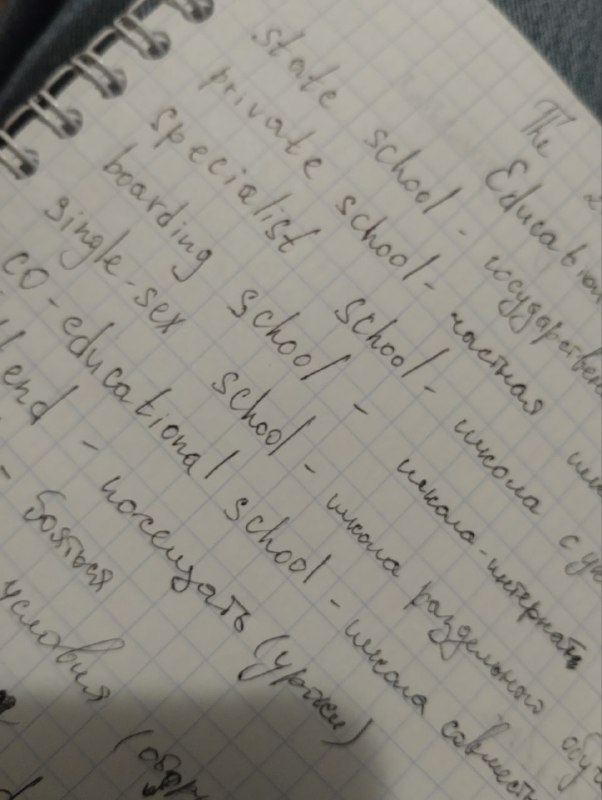 The 2
Education
state school - государствен
private school - частная шк
specialist school - школа с ук
boarding school - школа-интернат
single-sex school - школа раздельного обуч
co-educational school - школа совместн
tend - посещать (уроки)
- бояться
условия